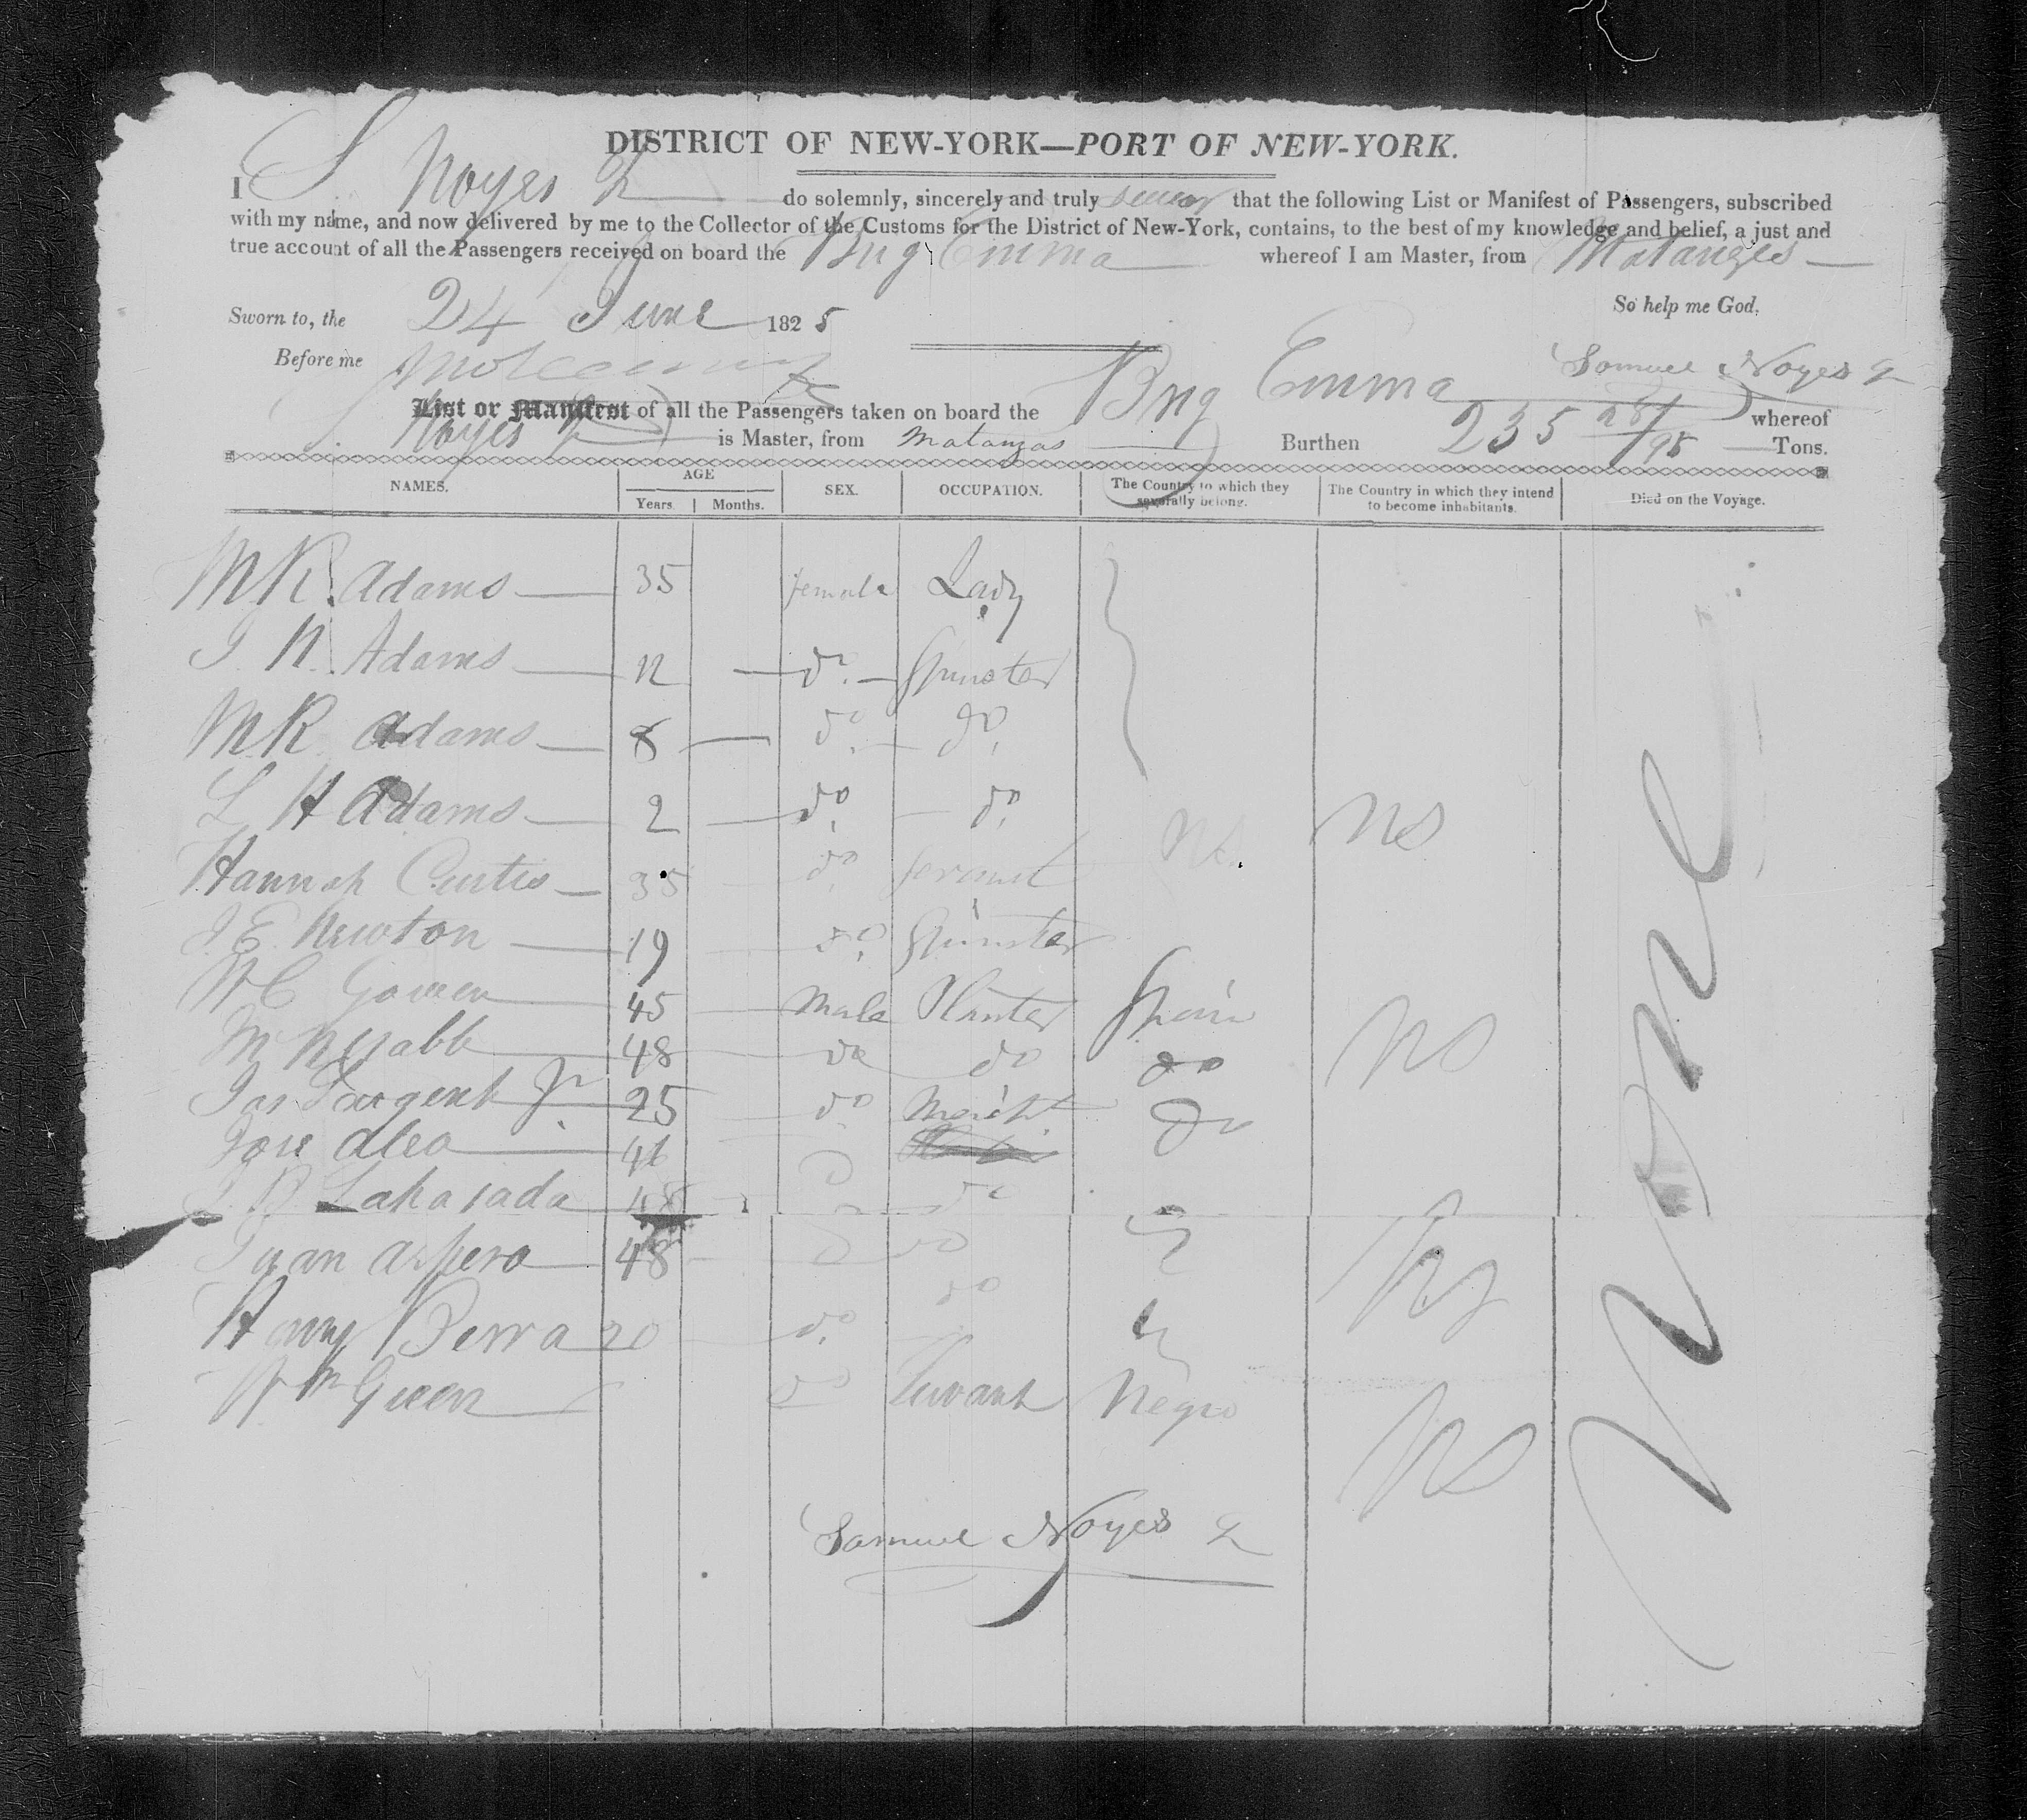 DISTRICT OF NEW-YORK—PORT OF NEW-YORK.
I S Noyes 2 do solemnly, sincerely and truly swear that the following List or Manifest of Passengers, subscribed
with my name, and now delivered by me to the Collector of the Customs for the District of New-York, contains, to the best of my knowledge and belief, a just and
true account of all the Passengers received on board the Brig Emma whereof I am Master, from Matanzes
So help me God.
Sworn to, the 24 June 1825
Before me
Samuel Noyes 2
List or Manifest of all the Passengers taken on board the Brig Emma whereof
Noyes is Master, from Matanzas Burthen 235 28/95 Tons.
NAMES. AGE SEX. OCCUPATION. The Country to which they severally belong. The Country in which they intend to become inhabitants. Died on the Voyage.
Years. Months.
M R. Adams 35 female Lady
J N. Adams 12 do. Spinster
M R Adams 8 do. do.
L H Adams 2 do. do. US US
Hannah Curtis 35 do. servant
J E. Newton 19 do. Spinster
W C Gowen 45 Male Planter Spain
M 48 do do do US
Jas Sargent Jr 25 do Mercht. Do
Jose Aleo
Laharada do
Juan Aspero 48 do
Henry Berra 20 do. do
Wm Green do Servant Negro
None
Samuel Noyes 2